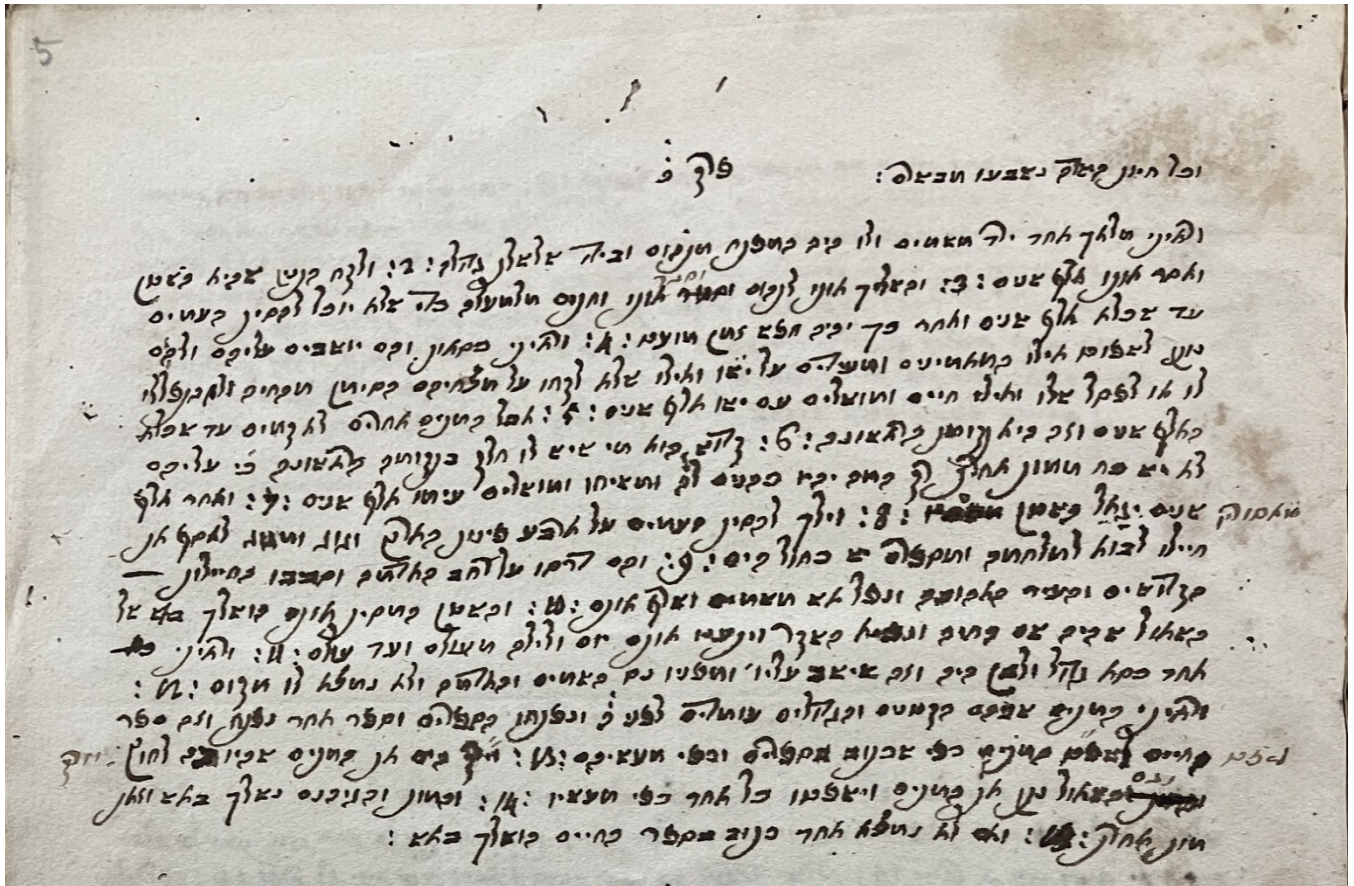 וכל חיות נשבעו מבשרם : פרק כ
וראיתי מלאך אחד ירד משמים ולו היה המפתח תהום ובידו שלשלת גדולה :2: ולקח הנחש שהוא השטן
ואסר אותו אלף שנים :3: והשליך אותו לתהום וסגר אותו וחתום מלמעלה כדי שלא יוכל להסית העמים
עד שכלא אלף שנים ואחר כך יהיה חפשי זמן מועט :4: וראיתי כסאות והם יושבים עליהם ולהם
נתן לשפוט אילו המאמינים ומעידים על ישו ואילו שלא לקחו על מצחיהם הסימן
לו או לפסל שלו ואילו חיים ומושלים עם ישו אלף שנים :5: אבל המתים אחרים לא קמים עד שכלא
האלף שנים וזה היא תקומה הראשונה :6: קדוש הוא מי שיש לו חלק בתקומה הראשונה כי עליהם
לא יש כח המות אחרת רק המה יהיו כהנים לה ומשיחו ומושלים עימו אלף שנים :7: ואחר אלף
שנים יגאל השטן מאסורה :8: וילך להסית העמים על ארבע פינות הארץ וגוג ומגוג לאסף את
חיילו לבוא למלחמה ומספרם יש כחול הים :9: והם הרסו על רחב האדמה וסבבו החיילות
הקדושים והעיר האהובה ונפל אש משמים ושרף אותם :10: והשטן המסית אותם הושלך באש אל
השאול שהיה שם החיה ונביא השקר ויתענו אותם יום ולילה מעולם ועד עולם :11: וראיתי
אחד כסא גדול ולבן היה וזה שישב עליו ומפניו נס השמים והאדמה ולא נמצא לו מקום :12:
וראיתי המתים שהם הקטנים והגדולים עומדים לפני ה ונפתחו הספרים וספר אחד נפתח וזה ספר
החיים המתים כפי שכתוב בספרים וכפי מעשיהם :13: הים את המתים שהיו בה לחוץ
והשאול נתן את המתים וישפטו כל אחד כפי מעשיו :14: והמות והגיהנם נשלך באש וזאת
מות אחרת :15: ואם לא נמצא אחד כתוב בספר החיים הושלך באש :
5